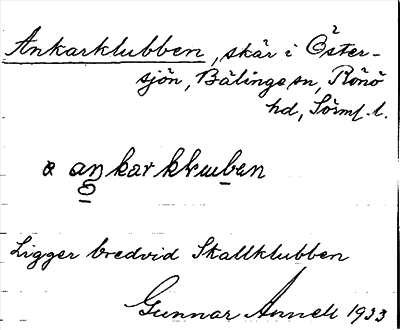 Ankarklubben, skär i Öster-
sjön, Bälinge sn, Rönö
hd, Sörml. l.
Ligger bredvid Skallklubben
Gunnar Annell 1933